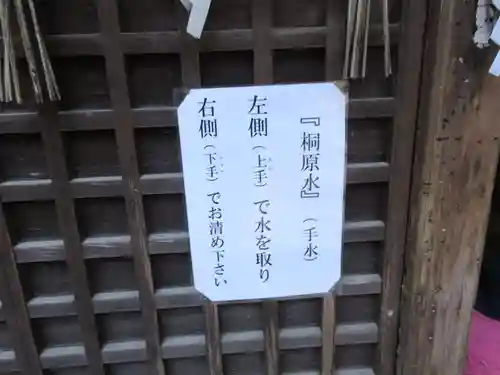 『桐原水』（手水）
左側（上手）で水を取り
右側（下手）でお清め下さい